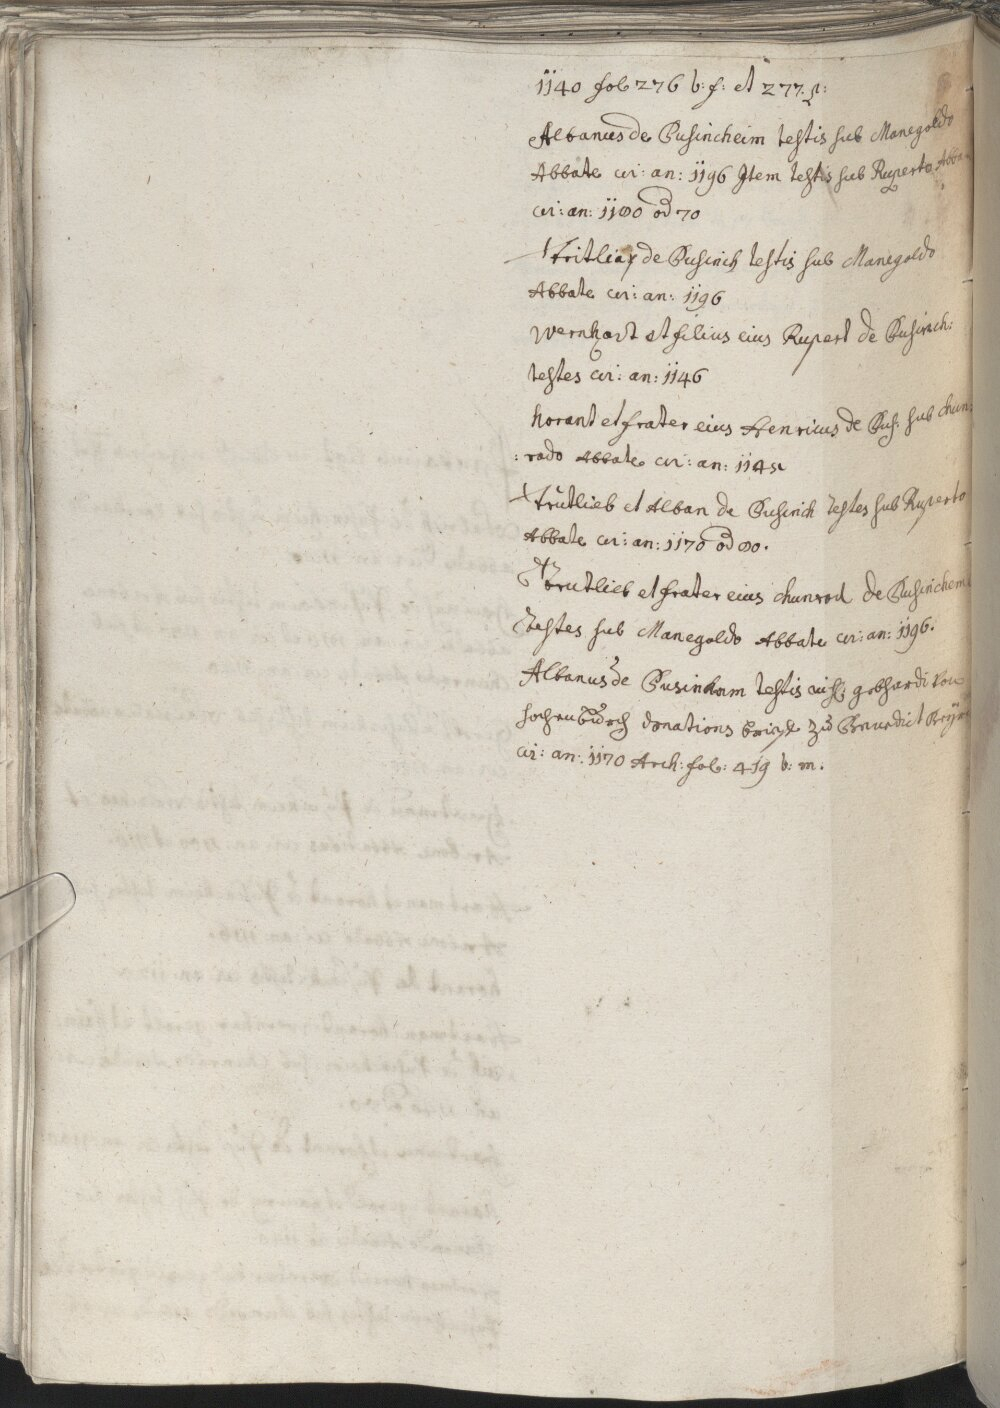 1140 fol 276 b: f: et 277. f:
Albanus de Pusincheim testis sub Manegoldo
Abbate cir: an: 1196 Item testis sub Ruperto Abba
cir: an: 1180 od 70
Tritliax de Pusinch testis sub Manegoldo
Abbate cir: an: 1196
Wernhart et filius eius Rupert de Pusinch:
testes cir: an: 1146
horant et frater eius Henricus de Pus: sub chun:
:rado Abbate cir: an: 1145
Trutlieb et Alban de Pusinch testes sub Ruperto
Abbate cir: an: 1170 od 80.
Trutlieb et frater eius chunrad de Pusinchem
testes sub Manegoldo Abbate cir: an: 1196.
Albanus de Pusinham testis gebhardi von
hochenburch donations brieff zu Benedict
cir: an: 1170 Arch: fol: 419 b: m: